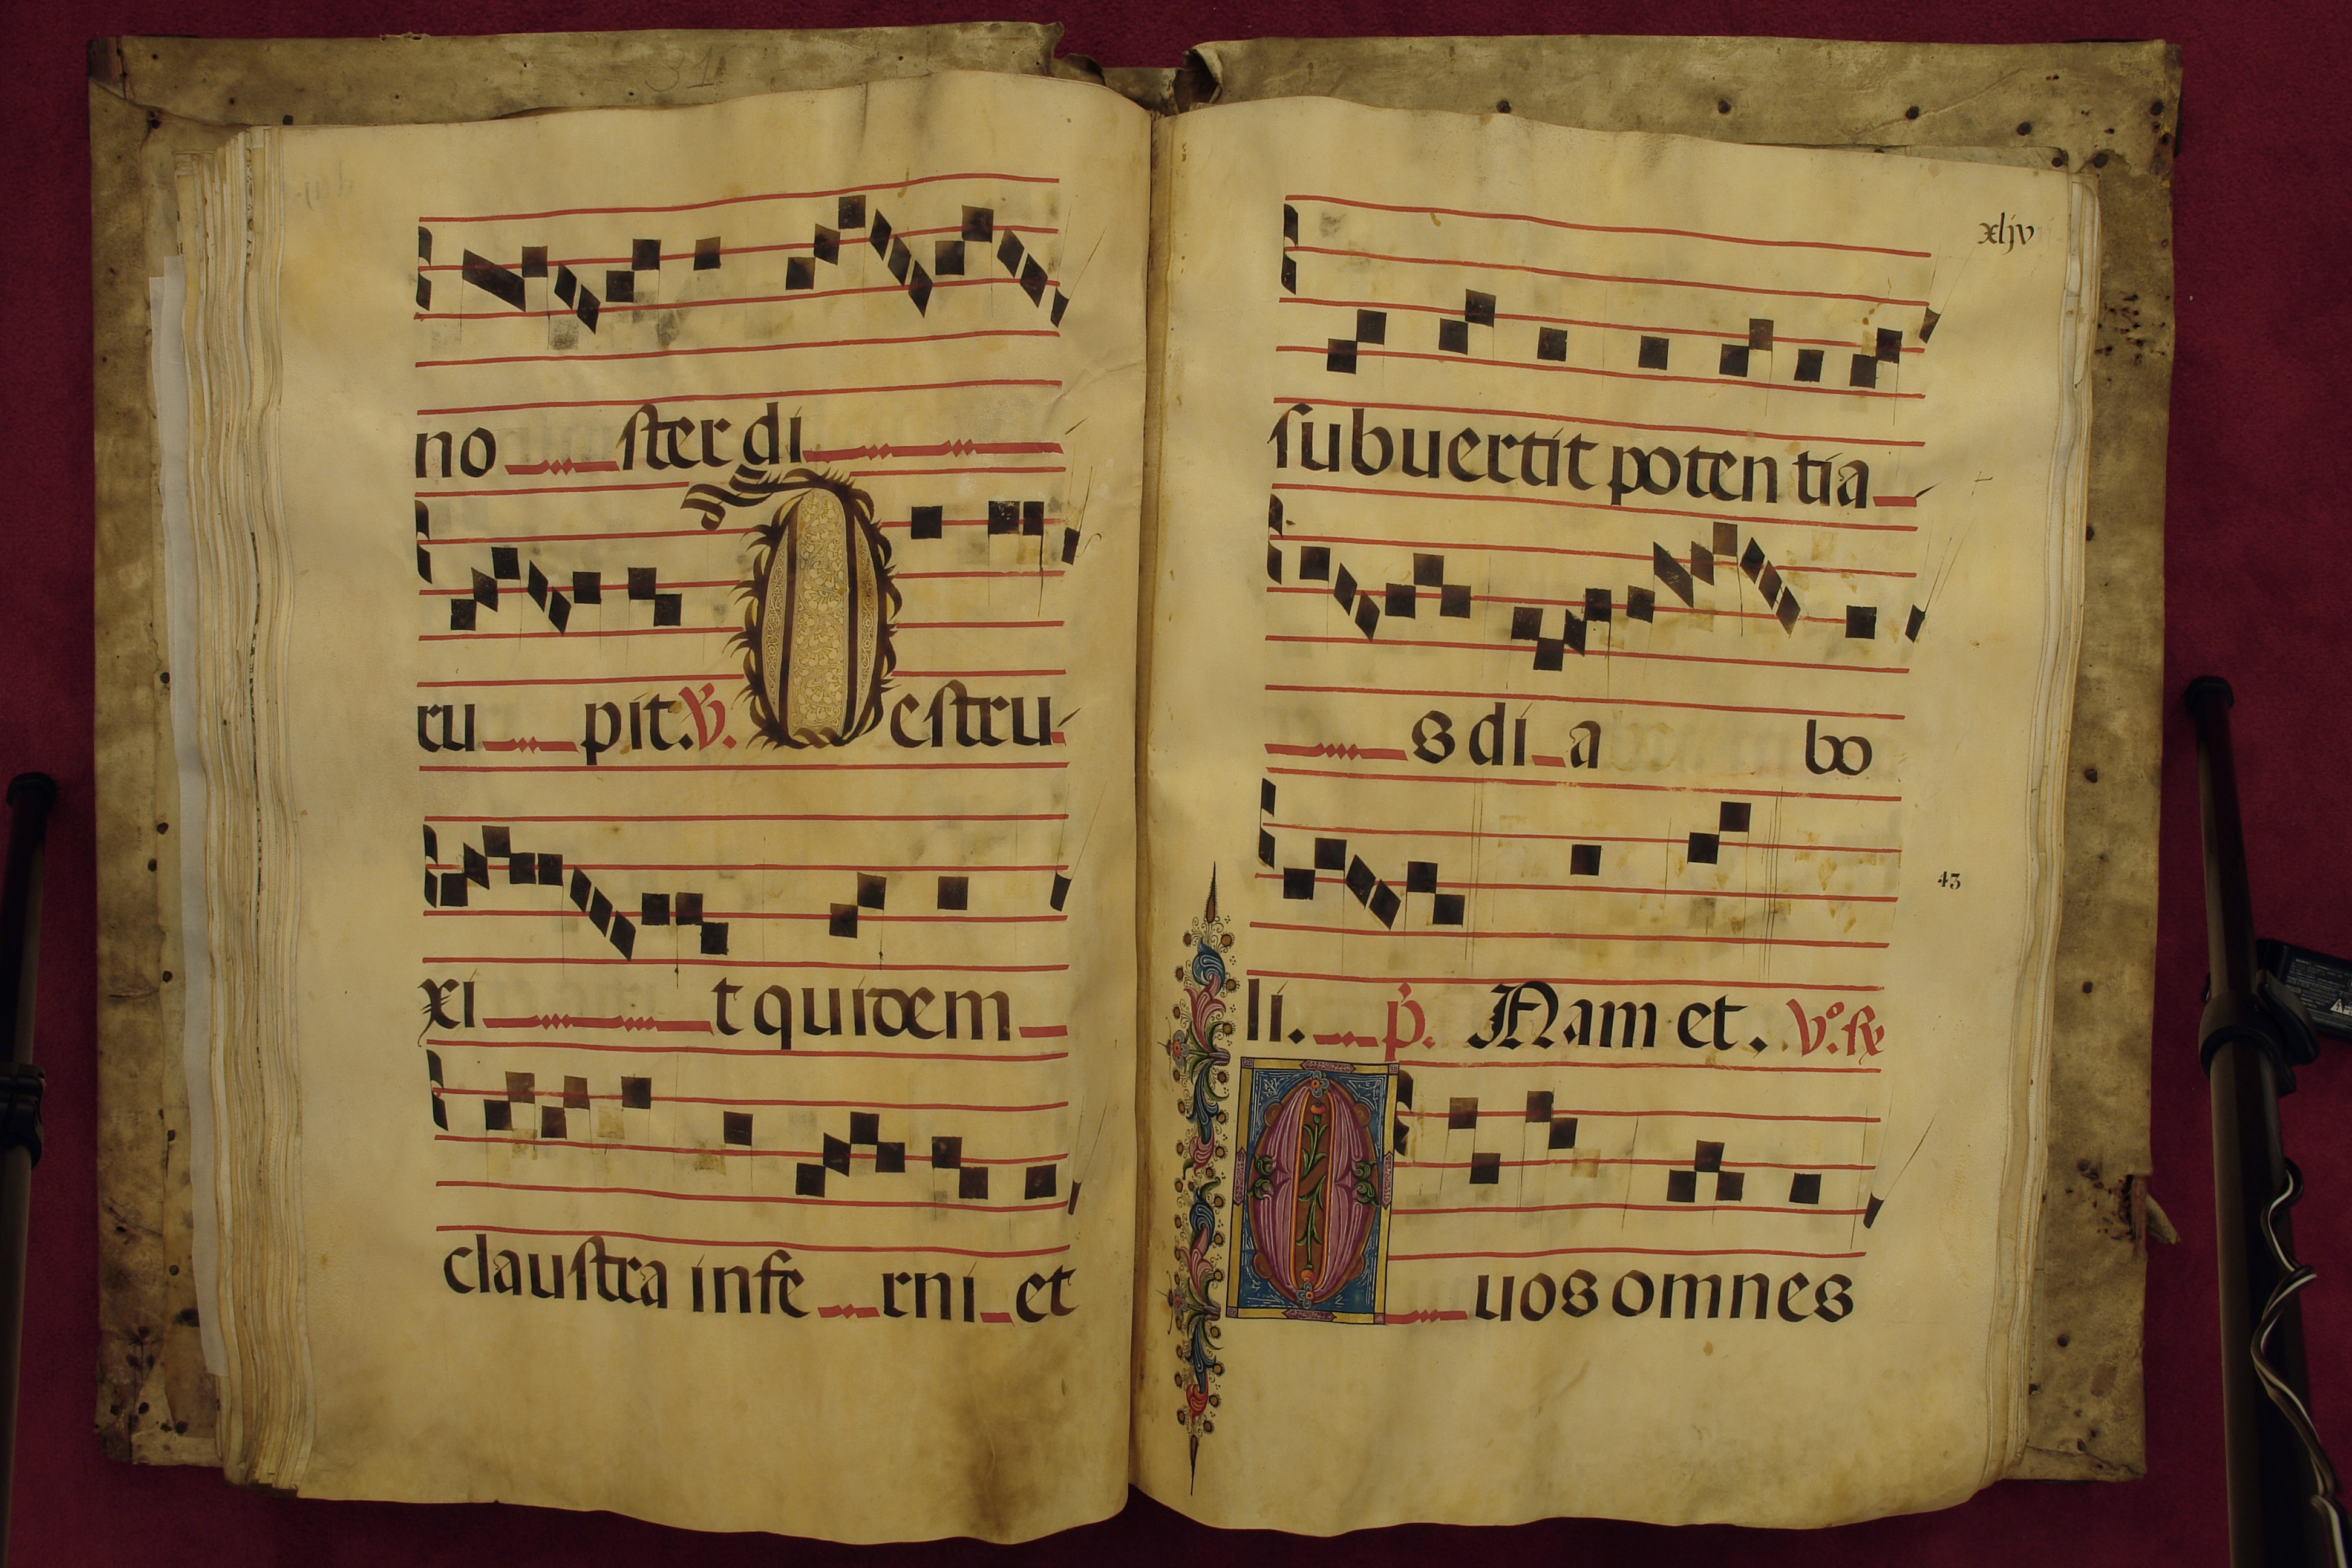 31
no ster di
rupit. V. Destru
xit quidem
claustra inferni et
xljv
subuertit potentia
s dia bo
43
li. p. Nam et. V.º R
Quos omnes